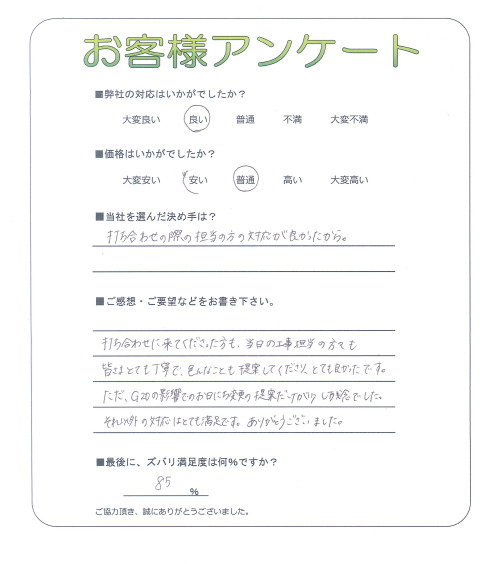 お客様アンケート
■弊社の対応はいかがでしたか？
大変良い 良い 普通 不満 大変不満
■価格はいかがでしたか？
大変安い 安い 普通 高い 大変高い
■当社を選んだ決め手は？
打ち合わせの際の担当の方の対応が良かったから。
■ご感想・ご要望などをお書き下さい。
打ち合わせに来てくださった方も、当日の工事担当の方々も
皆さまとても丁寧で、色んなことも提案してくださり、とても良かったです。
ただ、G20の影響でのお日にち変更の提案だけが少し残念でした。
それ以外の対応はとても満足です。ありがとうございました。
■最後に、ズバリ満足度は何%ですか？
85 %
ご協力頂き、誠にありがとうございました。